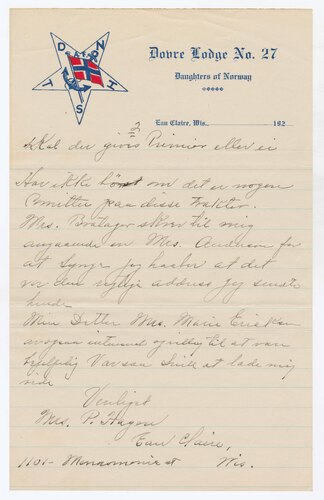 D N H S T
Dovre Lodge No. 27
Daughters of Norway
Eau Claire, Wis. 192
Skal der givis Primier eller ei
Har ikke hört om det er nogen
Comitter paa disse trakter.
Mrs. skrev til mig
angaaende en Mrs. Anderson for
at Synge jeg haaber at det
var den rigtige address jeg sendte
hende
Min Datter Mrs. Marie Erickson
og villig til at være
hjelpelig Var saa Snill at lade mig
vide
Venligst
Mrs. P. Hagen
Eau Claire,
1101- Menomonie st Wis.